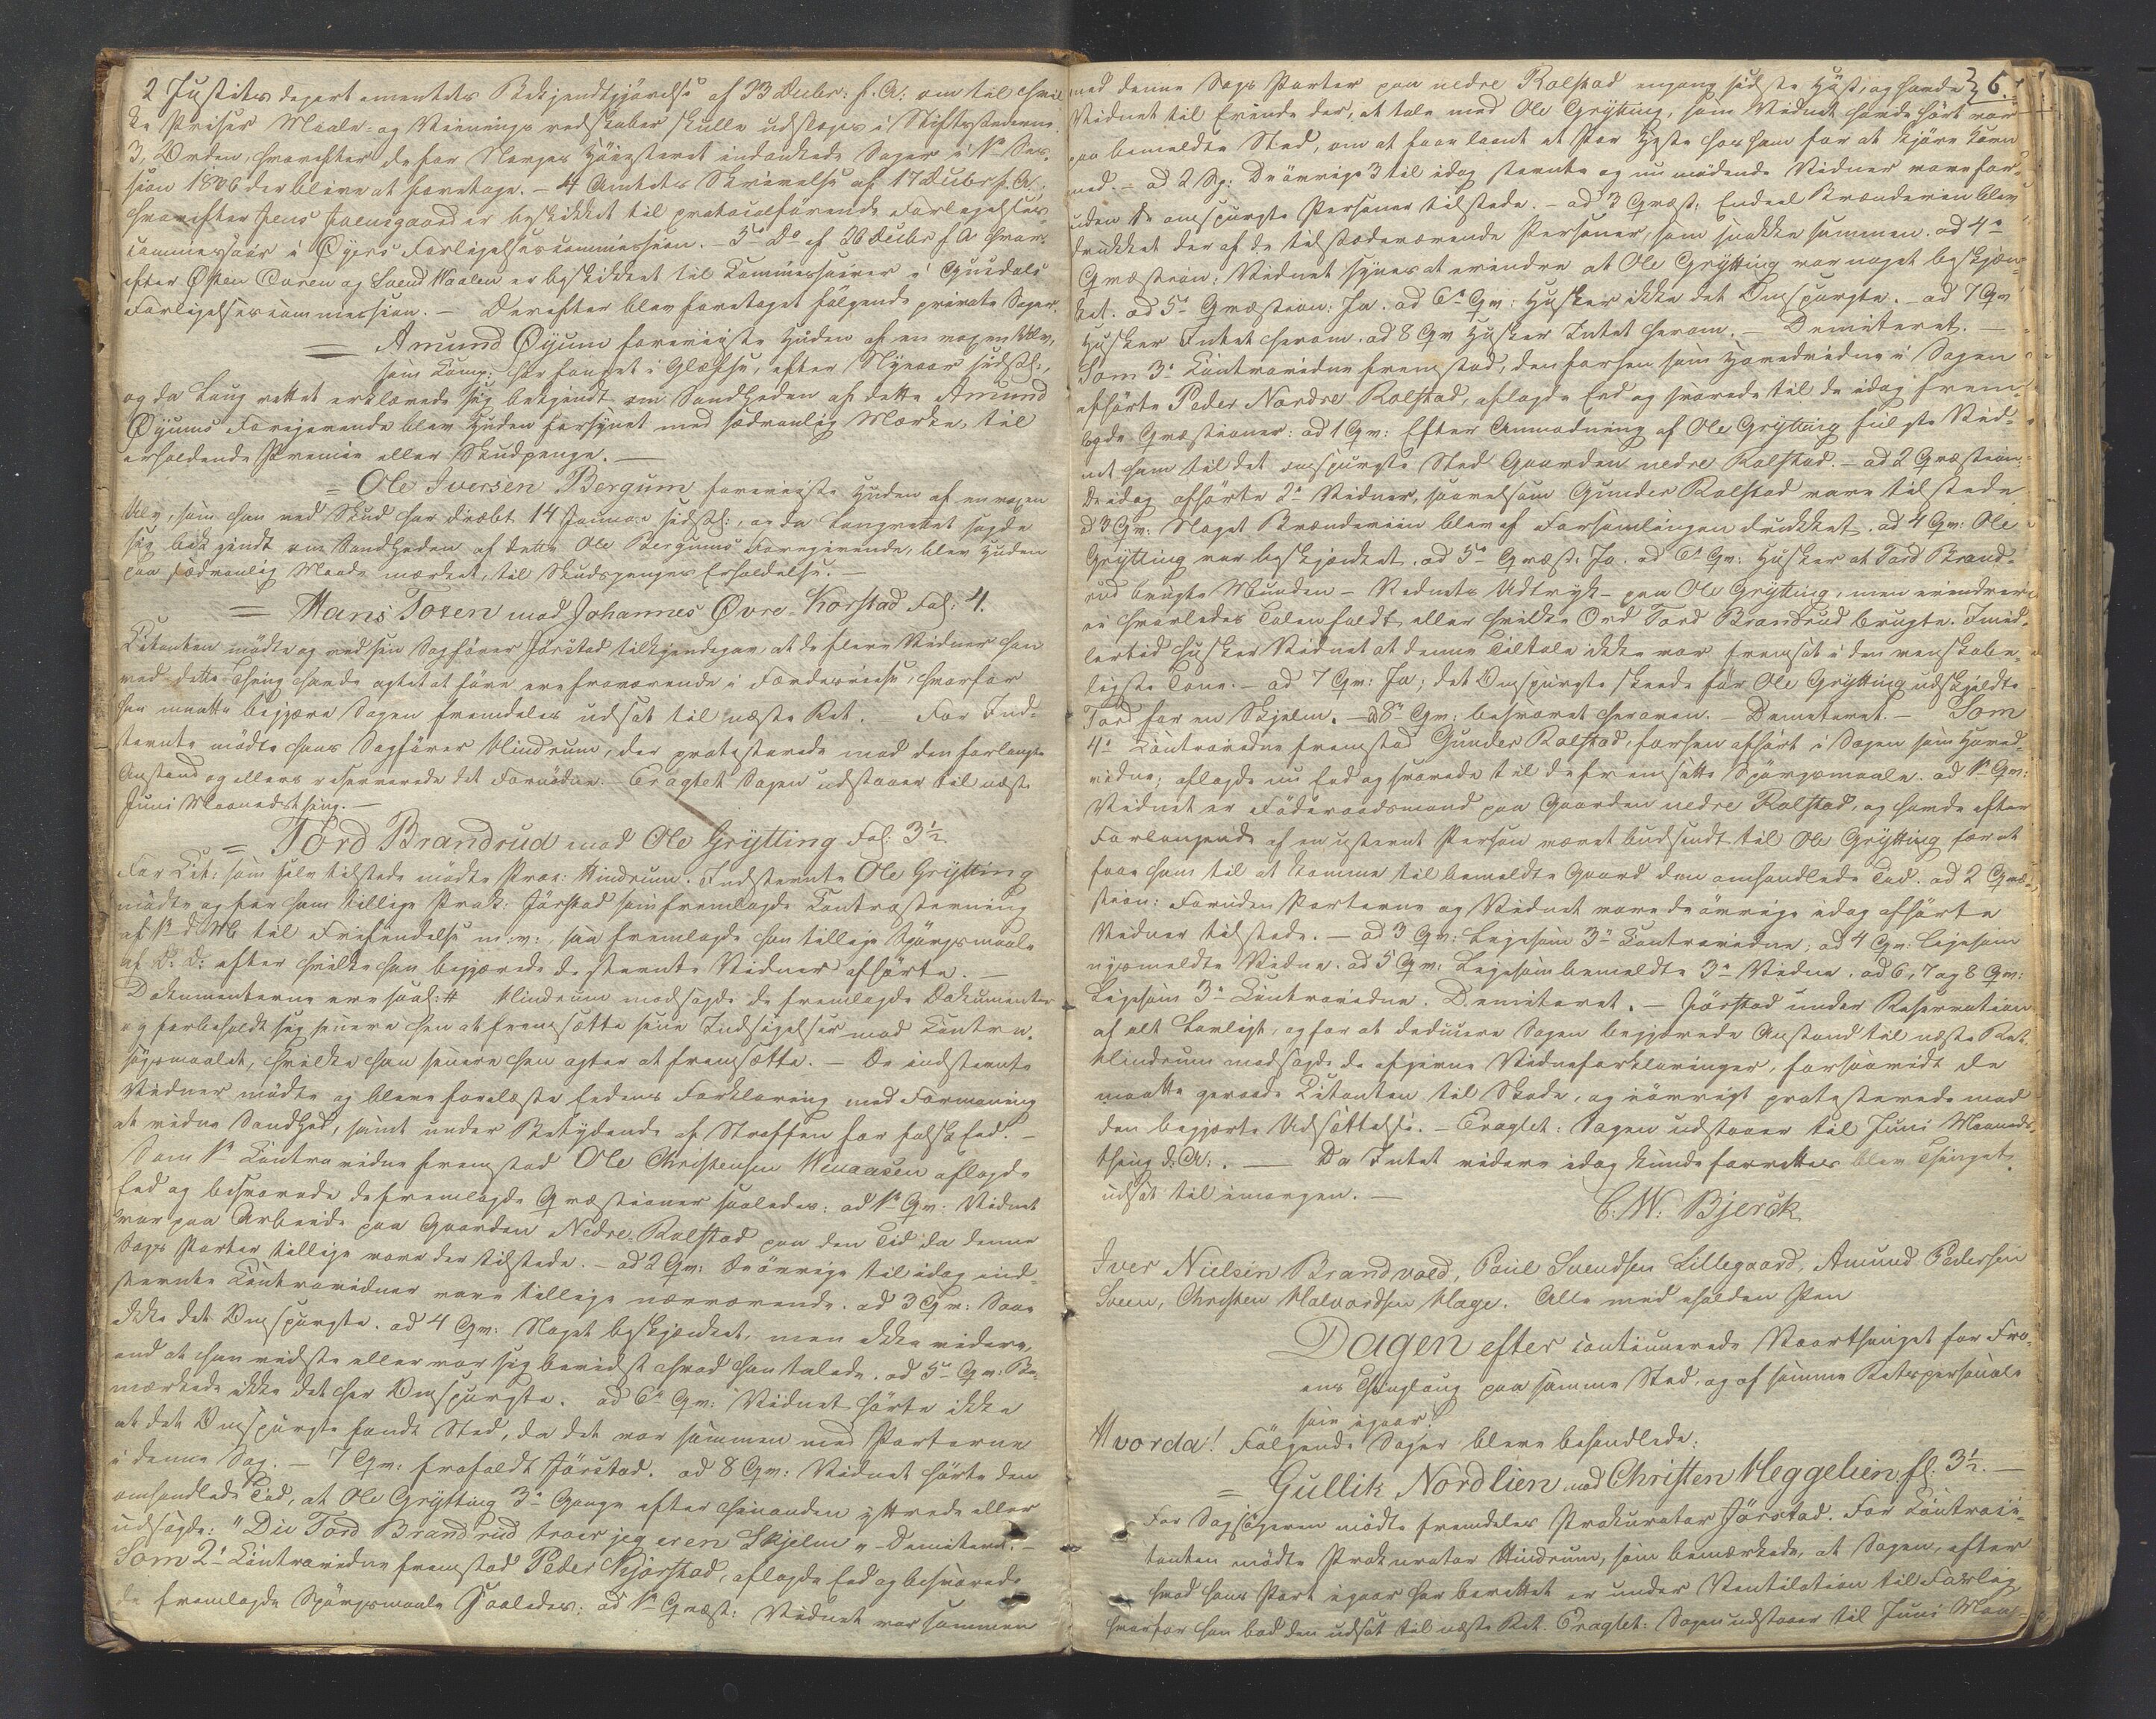 2 Justits departementets Bekjendtgjørelse af 23 Decbr: f. A: om til hvil
ke Priser Maale- og Veinings redskaber skulle udsælges i Stiftsstæderne.
3, Orden, hvorefter de for Norges Høiesteret indankede Sager i 1ste Ses-
sion 1836 der blive at foretage. – 4 Amtets Skrivelse af 17 Decbr f. A.,
hvorefter Jens Juensgaard er beskikket til protocolførende Forligelses-
commissair i Øyers Forligelsescommission. – 5te Do af 26 Decbr f A hvor-
efter Østen Qvren og Svend Waalen er beskikket til Commissairer i Gusdals
Forligelsescommission. – Derefter blev foretaget følgende private Sager.
= Amund Øyum foreviiste Huden af en voxen Ulv,
som Comp: har fanget i Glæfse, efter Nyaar sidstl:,
og da Laug rettet erklærede sig bekjendt om Sandheden af dette Amund
Øyums Foregivende blev Huden forsynet med sædvanlig Mærke, til
erholdende Præmie eller Skudpenge. –
= Ole Iversen Bergum foreviiste Huden af en voxen
Ulv, som han ved Skud har dræbt 14 Januar sidstl:, og da Laugrettet sagde
sig bekjendt om Sandheden af dette Ole Bergums Foregivende, blev Huden
paa sædvanlig Maade mærket, til Skudspenges Erholdelse. –
= Hans Toxen mod Johannes Øvre-Korstad Fol: 4.
Citanten mødte og ved sin Sagfører Jørstad tilkjendegav, at de flere Vidner han
ved dette Thing havde agtet at føre ere fraværende i Færdesreise, hvorfor
han maatte begjære Sagen fremdeles udsat til næste Ret. – For Ind-
stevnte mødte hans Sagfører Hindrum, der protesterede mod den forlangte
Anstand og ellers reserverede det Fornødne. Eragtet Sagen udstaaer til næste
Juni Maanedsthing. –
= Tord Brandrud mod Ole Grytting Fol: 3½
For Cit: som selv tilstede mødte Proc: Hindrum. Indstevnte Ole Grytting
mødte og for ham tillige Prok: Jørstad som fremlagde Contrastevning
af 1ste d. M. til Frifindelse m: v:, saa fremlagde han tillige Spørgsmaale
af D: D: efter hvilke han begjærede de stevnte Vidner afhørte. –
Dokumenterne ere saal: # Hindrum modsagde de fremlagde Dokumenter
og forbeholdt sig senere hen at fremsætte sine Indsigelser mod Contra-
søgsmaalet, hvilke han senere hen agter at fremsætte. – De indstevnte
Vidner mødte og bleve forelæste Eedens Forklaring med Formaning
at vidne Sandhed, samt under Betydende af Straffen for falsk Eed. –
Som 1ste Contra vidne fremstod Ole Christensen Wenaasen aflagde
Eed og besvarede de fremlagde Qvæstioner saaledes: ad 1ste Qv: Vidnet
var paa Arbeide paa Gaarden Nedre-Rolstad paa den Tid da denne
Sags Parter tillige vare der tilstede. – ad 2 Qv: De øvrige til idag ind-
stevnte Contravidner vare tillige nærværende. ad 3 Qv: Saae
ikke det Omspurgte. ad 4 Qv: Noget beskjænket, men ikke videre,
end at han vidste eller var sig bevidst hvad han talede. ad 5te Qv: Be-
mærkede ikke det her Omspurgte. ad 6te Qv: Vidnet hørte ikke
at det Omspurgte fandt Sted, da det var sammen med Parterne
i denne Sag. – 7 Qv: frafaldt Jørstad. ad 8 Qv: Vidnet hørte den
omhandlede Tid, at Ole Grytting 3de Gange efter hinanden yttrede eller
udsagde: "Du Tord Brandrud troer jeg er en Skjelm" – Demitteret. –
Som 2det Contravidne fremstod Peder Kjørstad, aflagde Eed og besvarede
de fremlagde Spørgsmaale Saaledes: ad 1ste Qvæst: Vidnet var sammen
6.
med denne Sags Parter paa nedre Rolstad engang sidste Høst, og havde
Vidnet til Erinde der, at tale med Ole Grytting, som Vidnet havde hørt var
paa bemeldte Sted, om at faae laant et Par Heste hos ham for at kjøre Korn
med. – ad 2 Sp: De øvrige 3 til idag stevnte og nu mødende Vidner vare for-
uden de omspurgte Personer tilstede. – ad 3 Qvæst: Endeel Brændeviin blev
drukket der af de tilstedeværende Personer, som snakke sammen. ad 4de
Qvæstion: Vidnet synes at erindre at Ole Grytting var noget beskjæn-
ket. ad 5te Qvæstion: Ja. ad 6te Qv: Husker ikke det Omspurgte. – ad 7 Qv
Husker Intet herom. ad 8 Qv Husker Intet herom. – Demitteret. –
Som 3de Contravidne fremstod, den forhen som Hovedvidne i Sagen
afhørte Peder Nordre Rolstad, aflagde Eed og svarede til de idag frem-
lagde Qvæstioner: ad 1 Qv: Efter Anmodning af Ole Grytting fulgte Vid-
net ham til det omspurgte Sted Gaarden nedre Rolstad. – ad 2 Qvæstion:
De idag afhørte 2de Vidner, saavelsom Gunder Rolstad vare tilstede
ad 3 Qv: Noget Brændeviin blev af Forsamlingen drukket. ad 4 Qv: Ole
Grytting var beskjænket. ad 5te Qvæst: Ja. ad 6te Qv: Husker at Tord Brand-
rud brugte Munden – Vidnets Udtryk – paa Ole Grytting, men erindrer
ei hvorledes Talen faldt eller hvilke Ord Tord Brandrud brugte. Imid-
lertid husker Vidnet at denne Tiltale ikke var fremsat i den venskabe-
ligste Tone. – ad 7 Qv: Ja; det Omspurgte skeede før Ole Grytting udskjeldte
Tord for en Skjelm. – ad 8de Qv: besvaret heroven. – Demitteret. – Som
4de Contravidne fremstod Gunder Rolstad, forhen afhørt i Sagen som Hoved-
vidne; aflagde nu Eed og svarede til de fremsatte Spørgsmaale. ad 1ste Qv:
Vidnet er Føderaadsmand paa Gaarden nedre Rolstad, og havde efter
Forlangende af en ustevnt Person været budsendt til Ole Grytting for at
faae ham til at komme til bemeldte Gaard den omhandlede Tid. ad 2 Qvæ-
stion: Foruden Parterne og Vidnet vare de øvrige idag afhørte
Vidner tilstede. – ad 3 Qv: Ligesom 3de Contravidne; ad 4 Qv: Ligesom
nysmeldte Vidne. ad 5 Qv: Ligesom bemeldte 3de Vidne. ad 6, 7 og 8 Qv:
Ligesom 3de Contravidne. Demitteret. – Jørstad under Reservation
af alt Lovligt, og for at deducere Sagen begjærede Anstand til næste Ret.
Hindrum modsagde de afgivne Vidneforklaringer, forsaavidt de
maatte geraade Citanten til Skade, og iøvrigt protesterede mod
den begjærte Udsættelse. – Eragtet: Sagen udstaaer til Juni Maaneds-
thing d: A:. – Da Intet videre idag kunde forrettes blev Thinget
udsat til imorgen. –
C. W. Bjerck
Iver Nielsen Brandvold, Poul Svendsen Lillegaard, Amund Pedersen
Sveen, Christen Halvordsen Hage. Alle med iholden Pen
Dagen efter continuerede Vaarthinget for Fro-
ens Thinglaug paa samme Sted, og af samme Retspersonale
som igaar.
Hvorda! Følgende Sager bleve behandlede:
= Gullik Nordlien mod Christen Heggelien fl: 3½. –
For Sagsøgeren mødte fremdeles Prokurator Jørstad. For Contraci-
tanten mødte Prokurator Hindrum, som bemærkede, at Sagen, efter
hvad hans Part igaar har berettet er under Ventilation til Forlig
hvorfor han bad den udsat til næste Ret. Eragtet: Sagen udstaaer til Juni Maa-